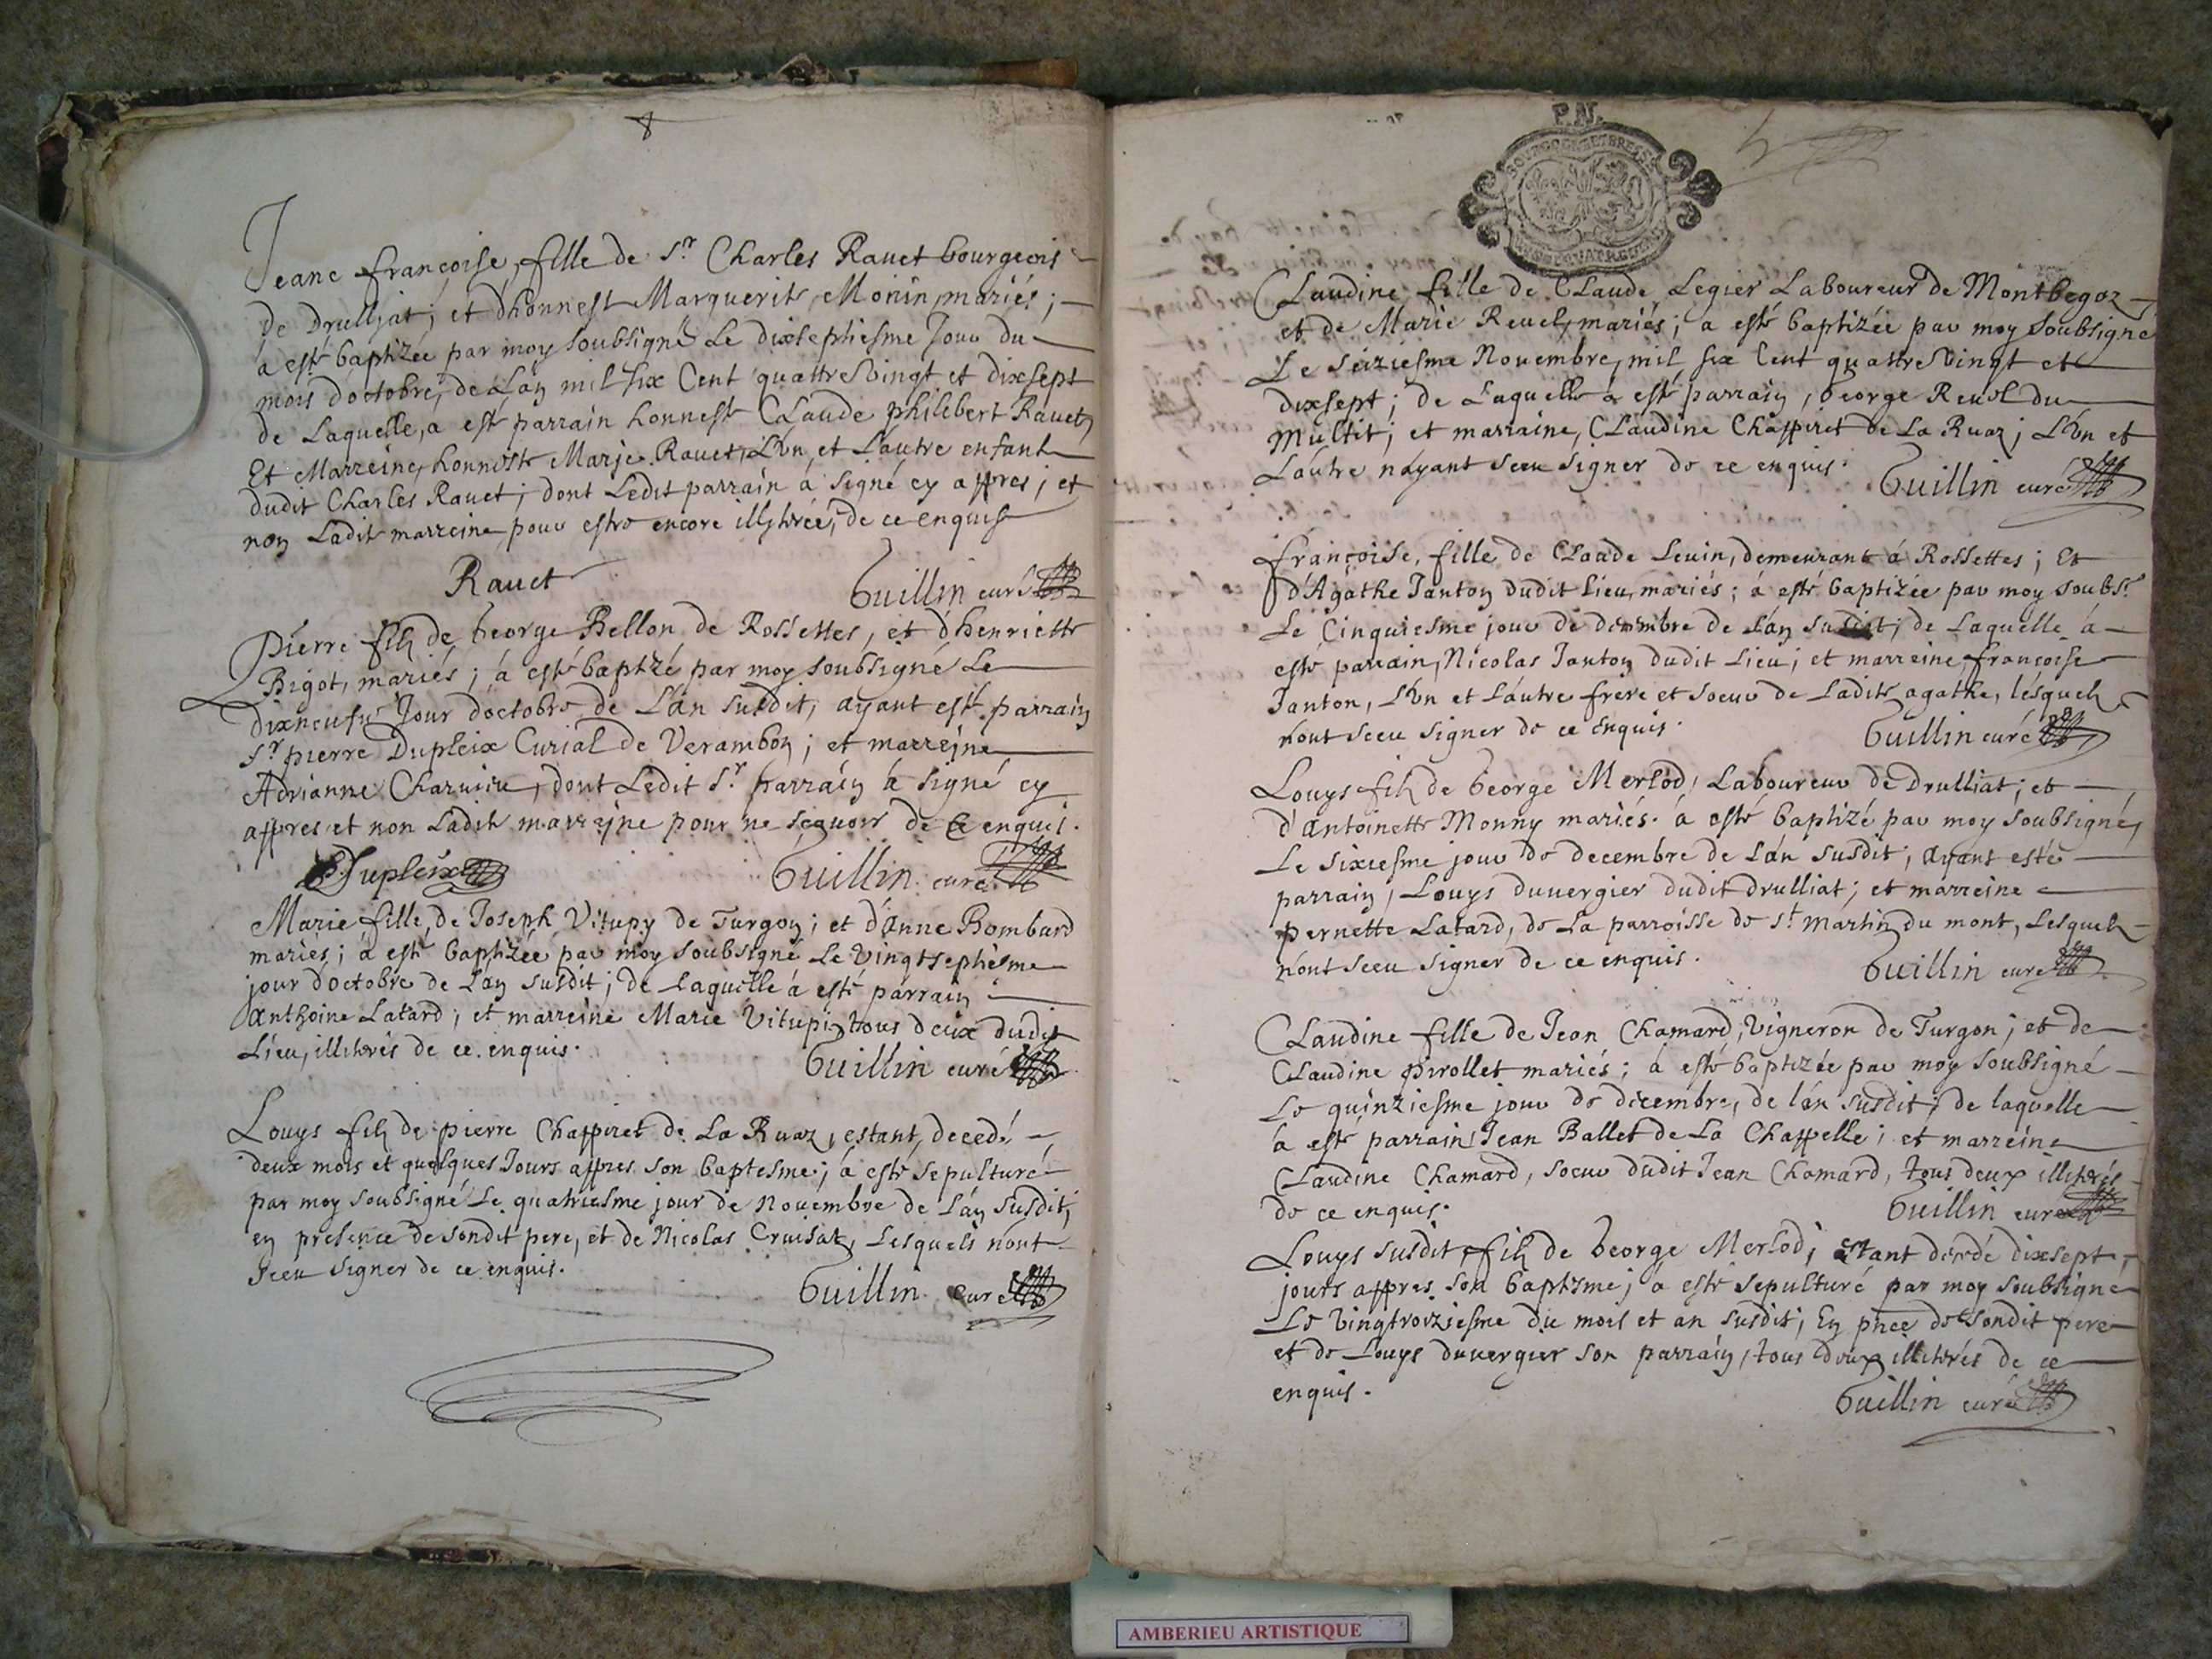 Jeane françoise, fille de Sr Charles Rauet bourgeois
de Drulliat; et d'honneste Marguerite Monin, mariés;
a esté baptizée par moy soubsigné Le dixseptiesme Jour du
mois d'octobre, de Lan mil six Cent quattre Vingt et dixsept
de Laquelle, a esté parrain honneste Claude philebert Rauet,
Et Marreine, honneste Marie Rauet, L'vn et L'autre enfant
dudit Charles Rauet; dont Ledit parrain à signé cy appres; et
non Ladite marreine pour estre encore illiterée, de ce enquise
Rauet
Guillin curé
Pierre fils de George Bellon de Rossettes, et d'henriette
Bigot, mariés; à esté baptizé par moy soubsigné Le
dixneufme Jour doctobre de L'an susdit, ayant esté parrain
Sr pierre Dupleix Curial de Varambon; et marreine
Adrianne Charuin, dont Ledit Sr parrain à signé cy
appres et non Ladite marreine pour ne scauoir de ce enquis.
Dupleix
Guillin curé
Marie fille, de Joseph Vitupy de Turgon; et d'anne Bombard
mariés; à esté baptizée par moy soubsigné Le Vingtseptiesme
jour d'octobre de L'an susdit; de laquelle à esté parrain
anthoine Latard; et marreine Marie Vitupy, tous deux dudit
Lieu, illiterés de ce enquis.
Guillin curé
Louys fils de pierre Chappiret de La Ruaz, estant, decedé
deux mois et quelques Jours appres son baptesme; à esté sepulturé
par moy soubsigné Le quatriesme jour de Nouembre de L'an susdit;
en presence de sondit pere, et de Nicolas Cruisat, Lesquels n'ont
sceu signer de ce enquis.
Guillin curé
P.N.
BOURGOGNE ET BRESSE
Claudine, fille de Claude Legier Laboureur de Montbegoz
et de Marie Reuel, mariés; a esté baptizée par moy soubsigné
Le seiziesme Nouembre, mil six Cent quattre Vingt et
dixsept; de Laquelle à esté parrain, George Reuel du
Multit; et marraine, Claudine Chappiret de La Ruaz; L'vn et
L'autre n'ayant sceu signer de ce enquis.
Guillin curé
françoise, fille de Claude Leuin, demeurant à Rossettes; Et
d'Agathe Janton dudit Lieu, mariés; à esté baptizée par moy soubs.
Le Cinquiesme jour de decembre de L'an susdit; de Laquelle à
esté parrain, Nicolas Janton dudit Lieu; et marreine, françoise
Janton, L'vn et L'autre frere et soeur de Ladite agathe, lésquels
n'ont sceu signer de ce enquis.
Guillin curé
Louys fils de George Merlod, Laboureur de Drulliat; et
d'antoinette Monny mariés. à esté baptizé par moy soubsigné,
Le sixiesme jour de decembre de L'an susdit, ayant esté
parrain, Louys duuergier dudit drulliat; et marreine
pernette Latard, de La parroisse de St martin du mont, Lesquels
n'ont sceu signer de ce enquis.
Guillin curé
Claudine fille de Jean Chamard, Vigneron de Turgon; et de
Claudine pirollet mariés; à esté baptizée par moy soubsigné
Le quinziesme jour de decembre, de l'an susdit; de laquelle
à esté parrain, Jean Ballet de La Chappelle; et marreine
Claudine Chamard, soeur dudit Jean Chamard, tous deux illiterés
de ce enquis.
Guillin curé
Louys susdit, fils de George Merlod, estant decedé dixsept
jours appres son baptesme; à esté sepulturé par moy soubsigné
Le Vingtroiziesme du mois et an susdit; En pnce de sondit pere
et de Louys duuergier son parrain, tous deux illiterés de ce
enquis.
Guillin curé
AMBERIEU ARTISTIQUE